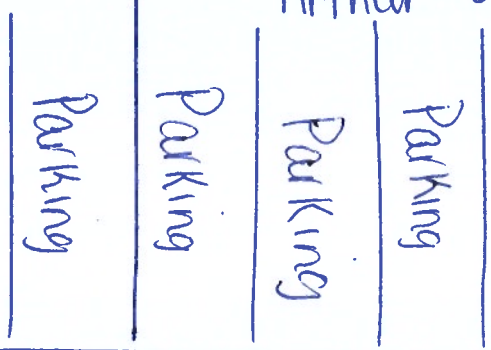 Parking
Parking
Parking
Parking